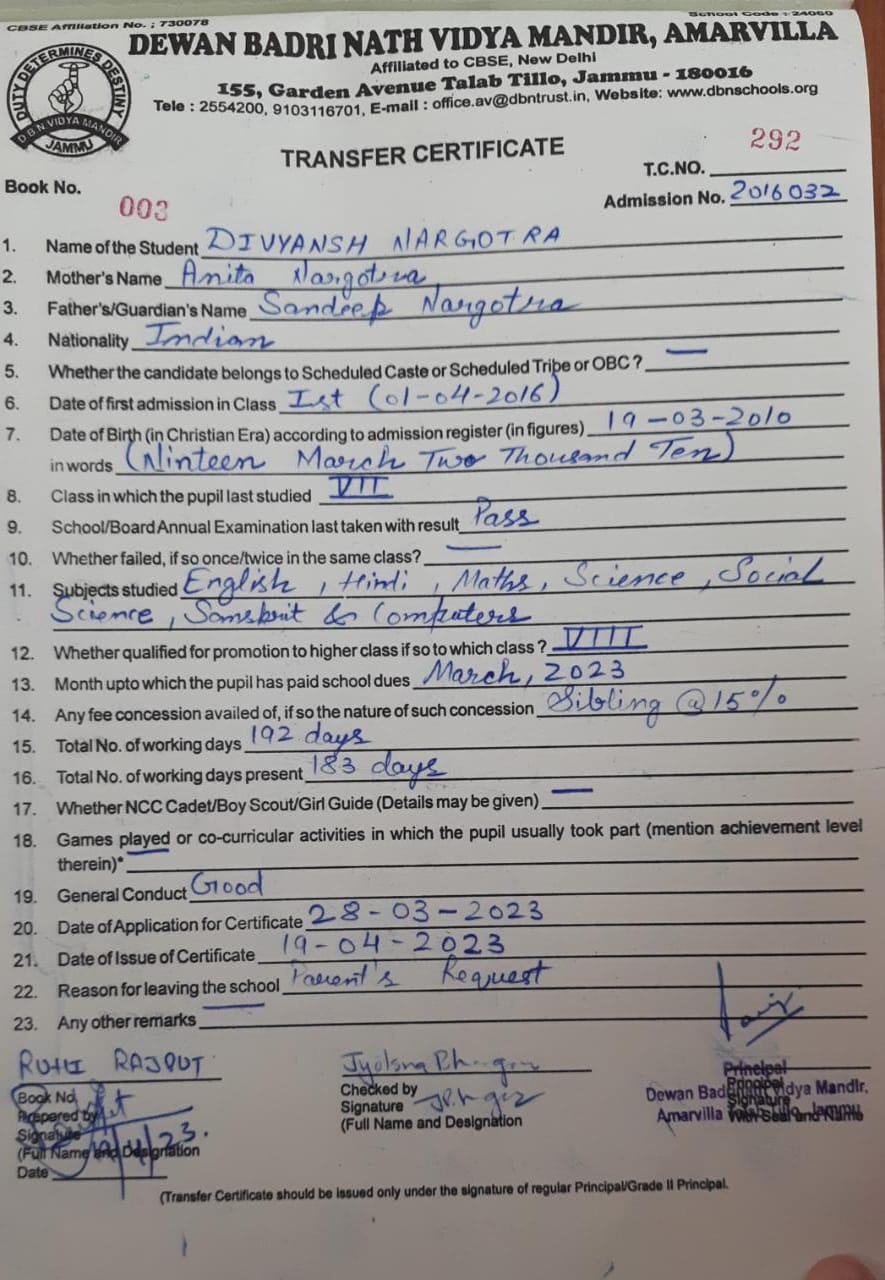 CBSE Affiliation No. : 730078 School Code : 24060
DEWAN BADRI NATH VIDYA MANDIR, AMARVILLA
Affiliated to CBSE, New Delhi
155, Garden Avenue Talab Tillo, Jammu - 180016
Tele : 2554200, 9103116701, E-mail : office.av@dbntrust.in, Website: www.dbnschools.org
DUTY DETERMINES DESTINY
D.B.N. VIDYA MANDIR
JAMMU
TRANSFER CERTIFICATE
292
T.C.NO.
Book No. 003
Admission No. 2016032
1. Name of the Student DIVYANSH NARGOTRA
2. Mother's Name Anita Nargotra
3. Father's/Guardian's Name Sandeep Nargotra
4. Nationality Indian
5. Whether the candidate belongs to Scheduled Caste or Scheduled Tribe or OBC ? —
6. Date of first admission in Class Ist (01-04-2016)
7. Date of Birth (in Christian Era) according to admission register (in figures) 19-03-2010
in words (Ninteen March Two Thousand Ten)
8. Class in which the pupil last studied VII
9. School/Board Annual Examination last taken with result Pass
10. Whether failed, if so once/twice in the same class? —
11. Subjects studied English, Hindi, Maths, Science, Social
Science, Sanskrit & Computers
12. Whether qualified for promotion to higher class if so to which class ? VIII
13. Month upto which the pupil has paid school dues March, 2023
14. Any fee concession availed of, if so the nature of such concession Sibling @ 15%
15. Total No. of working days 192 days
16. Total No. of working days present 183 days
17. Whether NCC Cadet/Boy Scout/Girl Guide (Details may be given) —
18. Games played or co-curricular activities in which the pupil usually took part (mention achievement level
therein)* —
19. General Conduct Good
20. Date of Application for Certificate 28-03-2023
21. Date of Issue of Certificate 19-04-2023
22. Reason for leaving the school Parent's Request
23. Any other remarks —
RAJPUT
Jyotsna
Book No.
Prepared by
Signature
(Full Name and Designation
Date
Checked by
Signature
(Full Name and Designation
Principal
Dewan Badri Nath Vidya Mandir,
Amarvilla Talab Tillo, Jammu
Principal
Signature
With Seal and Name
(Transfer Certificate should be issued only under the signature of regular Principal/Grade II Principal.